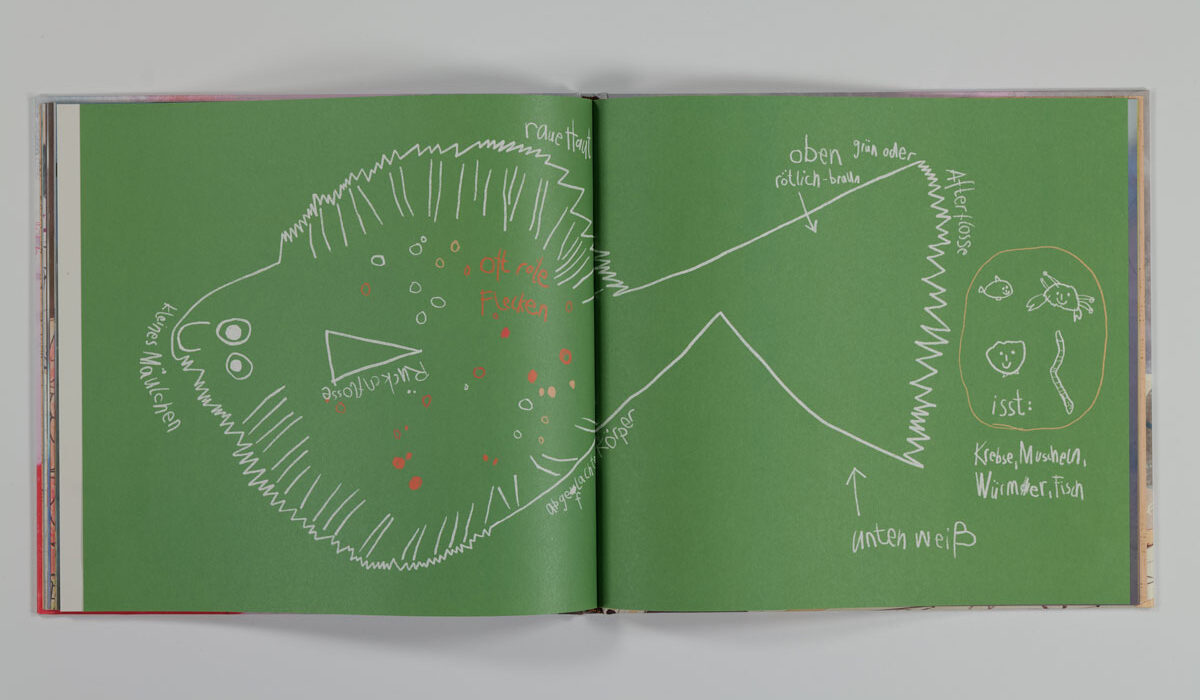 raue Haut
oft rote
Flecken
kleines Mäulchen
Rückenflosse
abgeflachter Körper
oben grün oder
rötlich-braun
Afterflosse
isst:
Krebse, Muscheln,
Würmer, Fisch
unten weiß